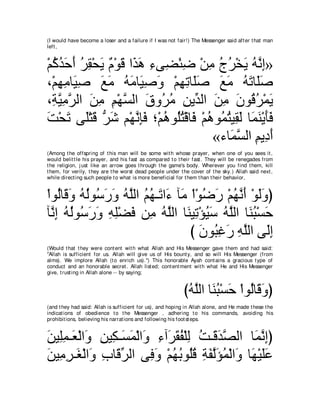 (I would have become a loser and a failure if I was not fair!) The Messenger said after that man
left,
«إِنَّهُ يَخْرُجُ مِنْ ضِئْضِىءِ هَذَا قَوْمٌ يَحْقِرُ أَحَدُكُمْ
صَلَاتَهُ مَعَ صَلَاتِهِمْ وَصِيَامَهُ مَعَ صِيَامِهِمْ،
يَمْرُقُونَ مِنَ الدِّينِ مُرُوقَ السَّهْمِ مِنَ الرَّمِيَّةِ،
فَأَيْنَمَا لَقِيتُمُوهُمْ فَاقْتُلُوهُمْ، فَإِنَّهُمْ شَرُّ قَتْلَى تَحْتَ
أَدِيمِ السَّمَاء»
(Among the offspring of this man will be some with whose prayer, when one of you sees it,
would belittle his prayer, and his fast as compared to their fast. They will be renegades from
the religion, just like an arrow goes through the game's body. Wherever you find them, kill
them, for verily, they are the worst dead people under the cover of the sky.) Allah said next,
while directing such people to what is more beneficial for them than their behavior,
(وَلَوْ أَنَّهُمْ رَضُوْاْ مَآ ءَاتَـهُمُ اللَّهُ وَرَسُولُهُ وَقَالُواْ
حَسْبُنَا اللَّهُ سَيُؤْتِينَا اللَّهُ مِن فَضْلِهِ وَرَسُولُهُ إِنَّآ
إِلَى اللَّهِ رَغِبُونَ )
(Would that they were content with what Allah and His Messenger gave them and had said:
"Allah is sufficient for us. Allah will give us of His bounty, and so will His Messenger (from
alms). We implore Allah (to enrich us).") This honorable Ayah contains a gracious type of
conduct and an honorable secret. Allah listed; contentment with what He and His Messenger
give, trusting in Allah alone -- by saying;
(وَقَالُواْ حَسْبُنَا اللَّهُ)
(and they had said: Allah is sufficient for us), and hoping in Allah alone, and He made these the
indications of obedience to the Messenger , adhering to his commands, avoiding his
prohibitions, believing his narrations and following his footsteps.
(إِنَّمَا الصَّدَقَـتُ لِلْفُقَرَآءِ وَالْمَسَـكِينِ وَالْعَـمِلِينَ
عَلَيْهَا وَالْمُؤَلَّفَةِ قُلُوبُهُمْ وَفِي الرِّقَابِ وَالْغَـرِمِينَ